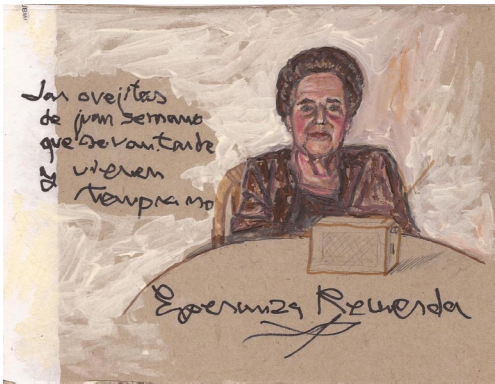 Las ovejitas
de juan Serrano
que se van tarde
y vienen
temprano
Esperanza Recuerda